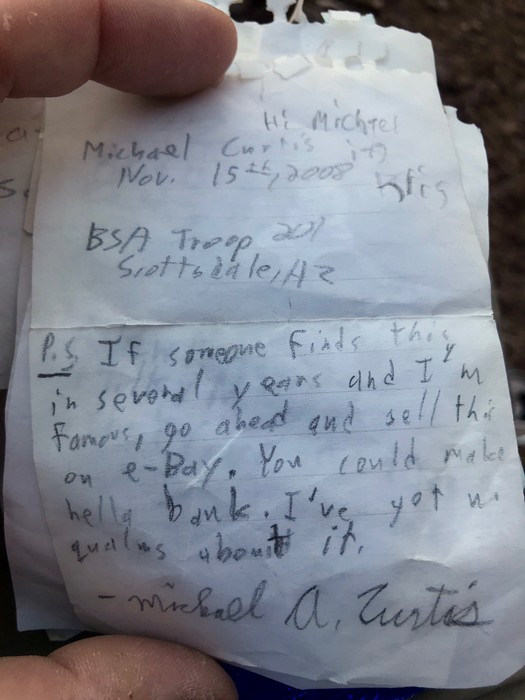 Hi Michael
Michael Curtis
Nov. 15th, 2008
BSA Troop 201
Scottsdale, AZ
P.S. If someone finds this
in several years and I'm
famous, go ahead and sell this
on e-Bay. You could make
hella bank. I've got no
qualms about it.
- Michael A. Curtis